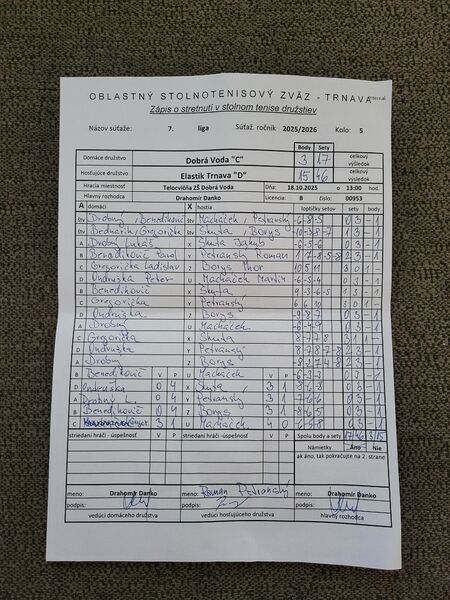 OBLASTNÝ STOLNOTENISOVÝ ZVÄZ - TRNAVA Internal
Zápis o stretnutí v stolnom tenise družstiev
Názov súťaže: 7. liga Súťaž. ročník 2025/2026 Kolo: 5
Body Sety
Domáce družstvo Dobrá Voda "C" 3 17 celkový výsledok
Hosťujúce družstvo Elastik Trnava "D" 15 46 celkový výsledok
Hracia miestnosť Telocvičňa ZŠ Dobrá Voda Dňa: 18.10.2025 o 13:00 hod.
Hlavný rozhodca Licencia: B číslo: 00953
A domáci X hostia loptičky setov sety body
štv Drobný, Benedikovič štv Macháček, Petranský -6 -8 -5 0 3 - 1
štv Bednárik, Gregorička štv Skuta, Borys 1 3 - 1
A Drobný Lukáš X Skuta Jakub -6 -5 -6 0 3 - 1
B Benedikovič Pavol Y Petranský Roman 2 3 - 1
C Gregorička Ladislav Z Borys Ihor 10 5 11 3 0 1 -
D Ondruška Peter U Macháček Martin -6 -5 -4 0 3 - 1
B Benedikovič X Skuta 1 3 - 1
C Gregorička Y Petranský 6 6 10 3 0 1 -
D Ondruška Z Borys -9 -8 -7 0 3 - 1
A Drobný U Macháček 0 3 - 1
C Gregorička X Skuta 3 1 1 -
D Ondruška Y Petranský 2 3 - 1
A Drobný Z Borys 2 3 - 1
B Benedikovič V P U Macháček V P 0 3 - 1
D Ondruška 0 4 X Skuta 3 1 0 3 - 1
A Drobný L. 0 4 Y Petranský 3 1 0 3 - 1
B Benedikovič 0 4 Z Borys 3 1 0 3 - 1
C 3 1 U Macháček 4 0 0 3 - 1
striedaní hráči - úspešnosť V P striedaní hráči - úspešnosť V P Spolu body a sety 17 46 3 15
Námietky Áno Nie
ak áno, tak pokračujte na 2. strane
meno: Drahomír Danko meno: Roman Petranský meno: Drahomír Danko
podpis: podpis: podpis:
vedúci domáceho družstva vedúci hosťujúceho družstva hlavný rozhodca